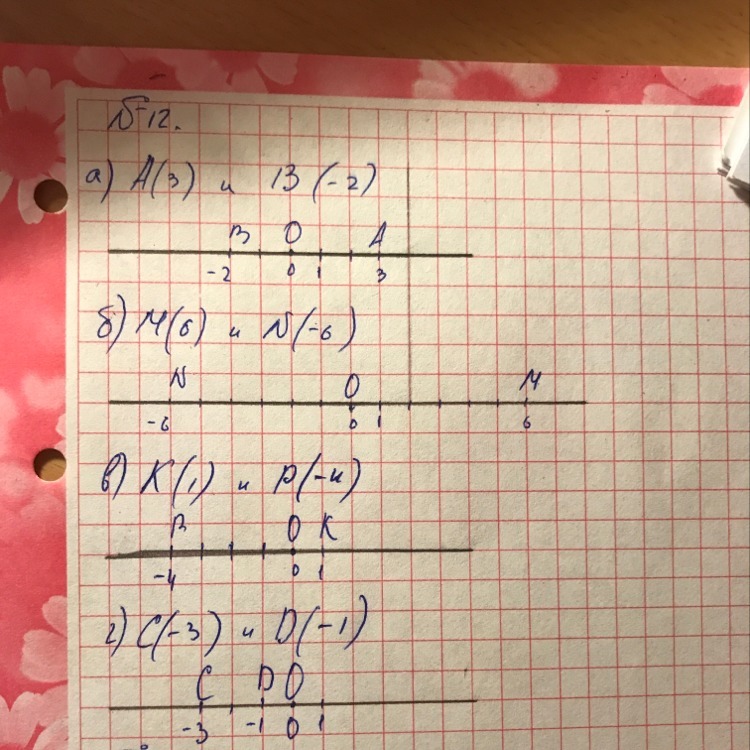 №12.
а) A(3) и B(-2)
B O A
-2 0 1 3
б) M(6) и N(-6)
N O M
-6 0 1 6
в) K(1) и P(-4)
P O K
-4 0 1
г) C(-3) и D(-1)
C D O
-3 -1 0 1